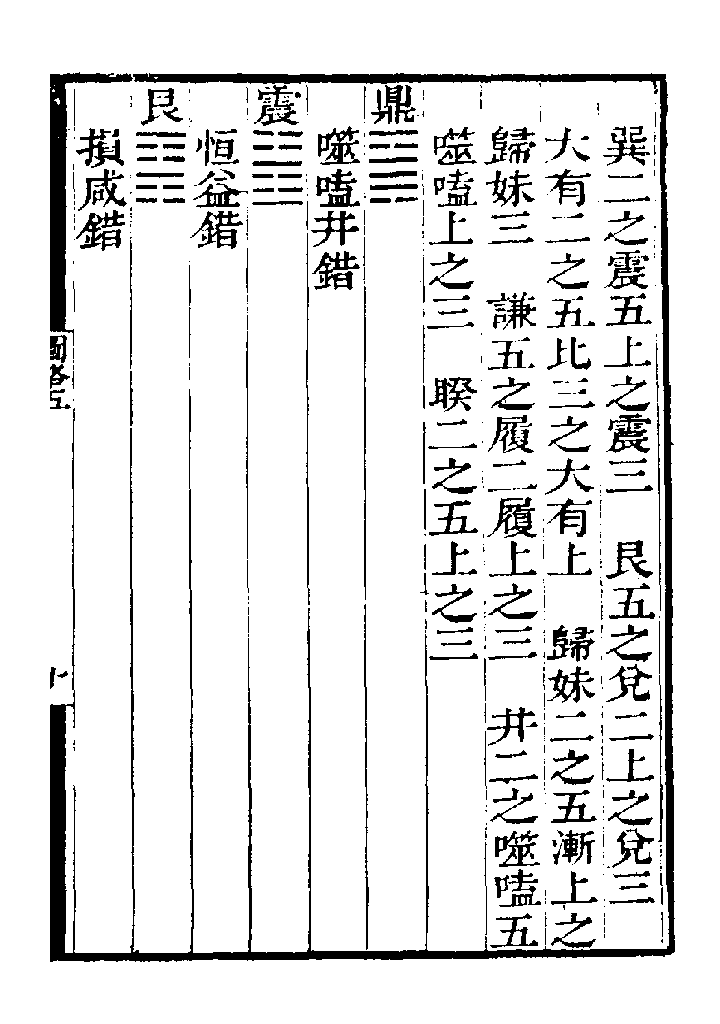 巽二之震五上之震三　艮五之兌二上之兌三
大有二之五比三之大有上　歸妹二之五漸上之
歸妹三　謙五之履二履上之三　井二之噬嗑五
噬嗑上之三　睽二之五上之三
鼎䷱
噬嗑井錯
震䷲
恒益錯
艮䷳
損咸錯
圖略五
十